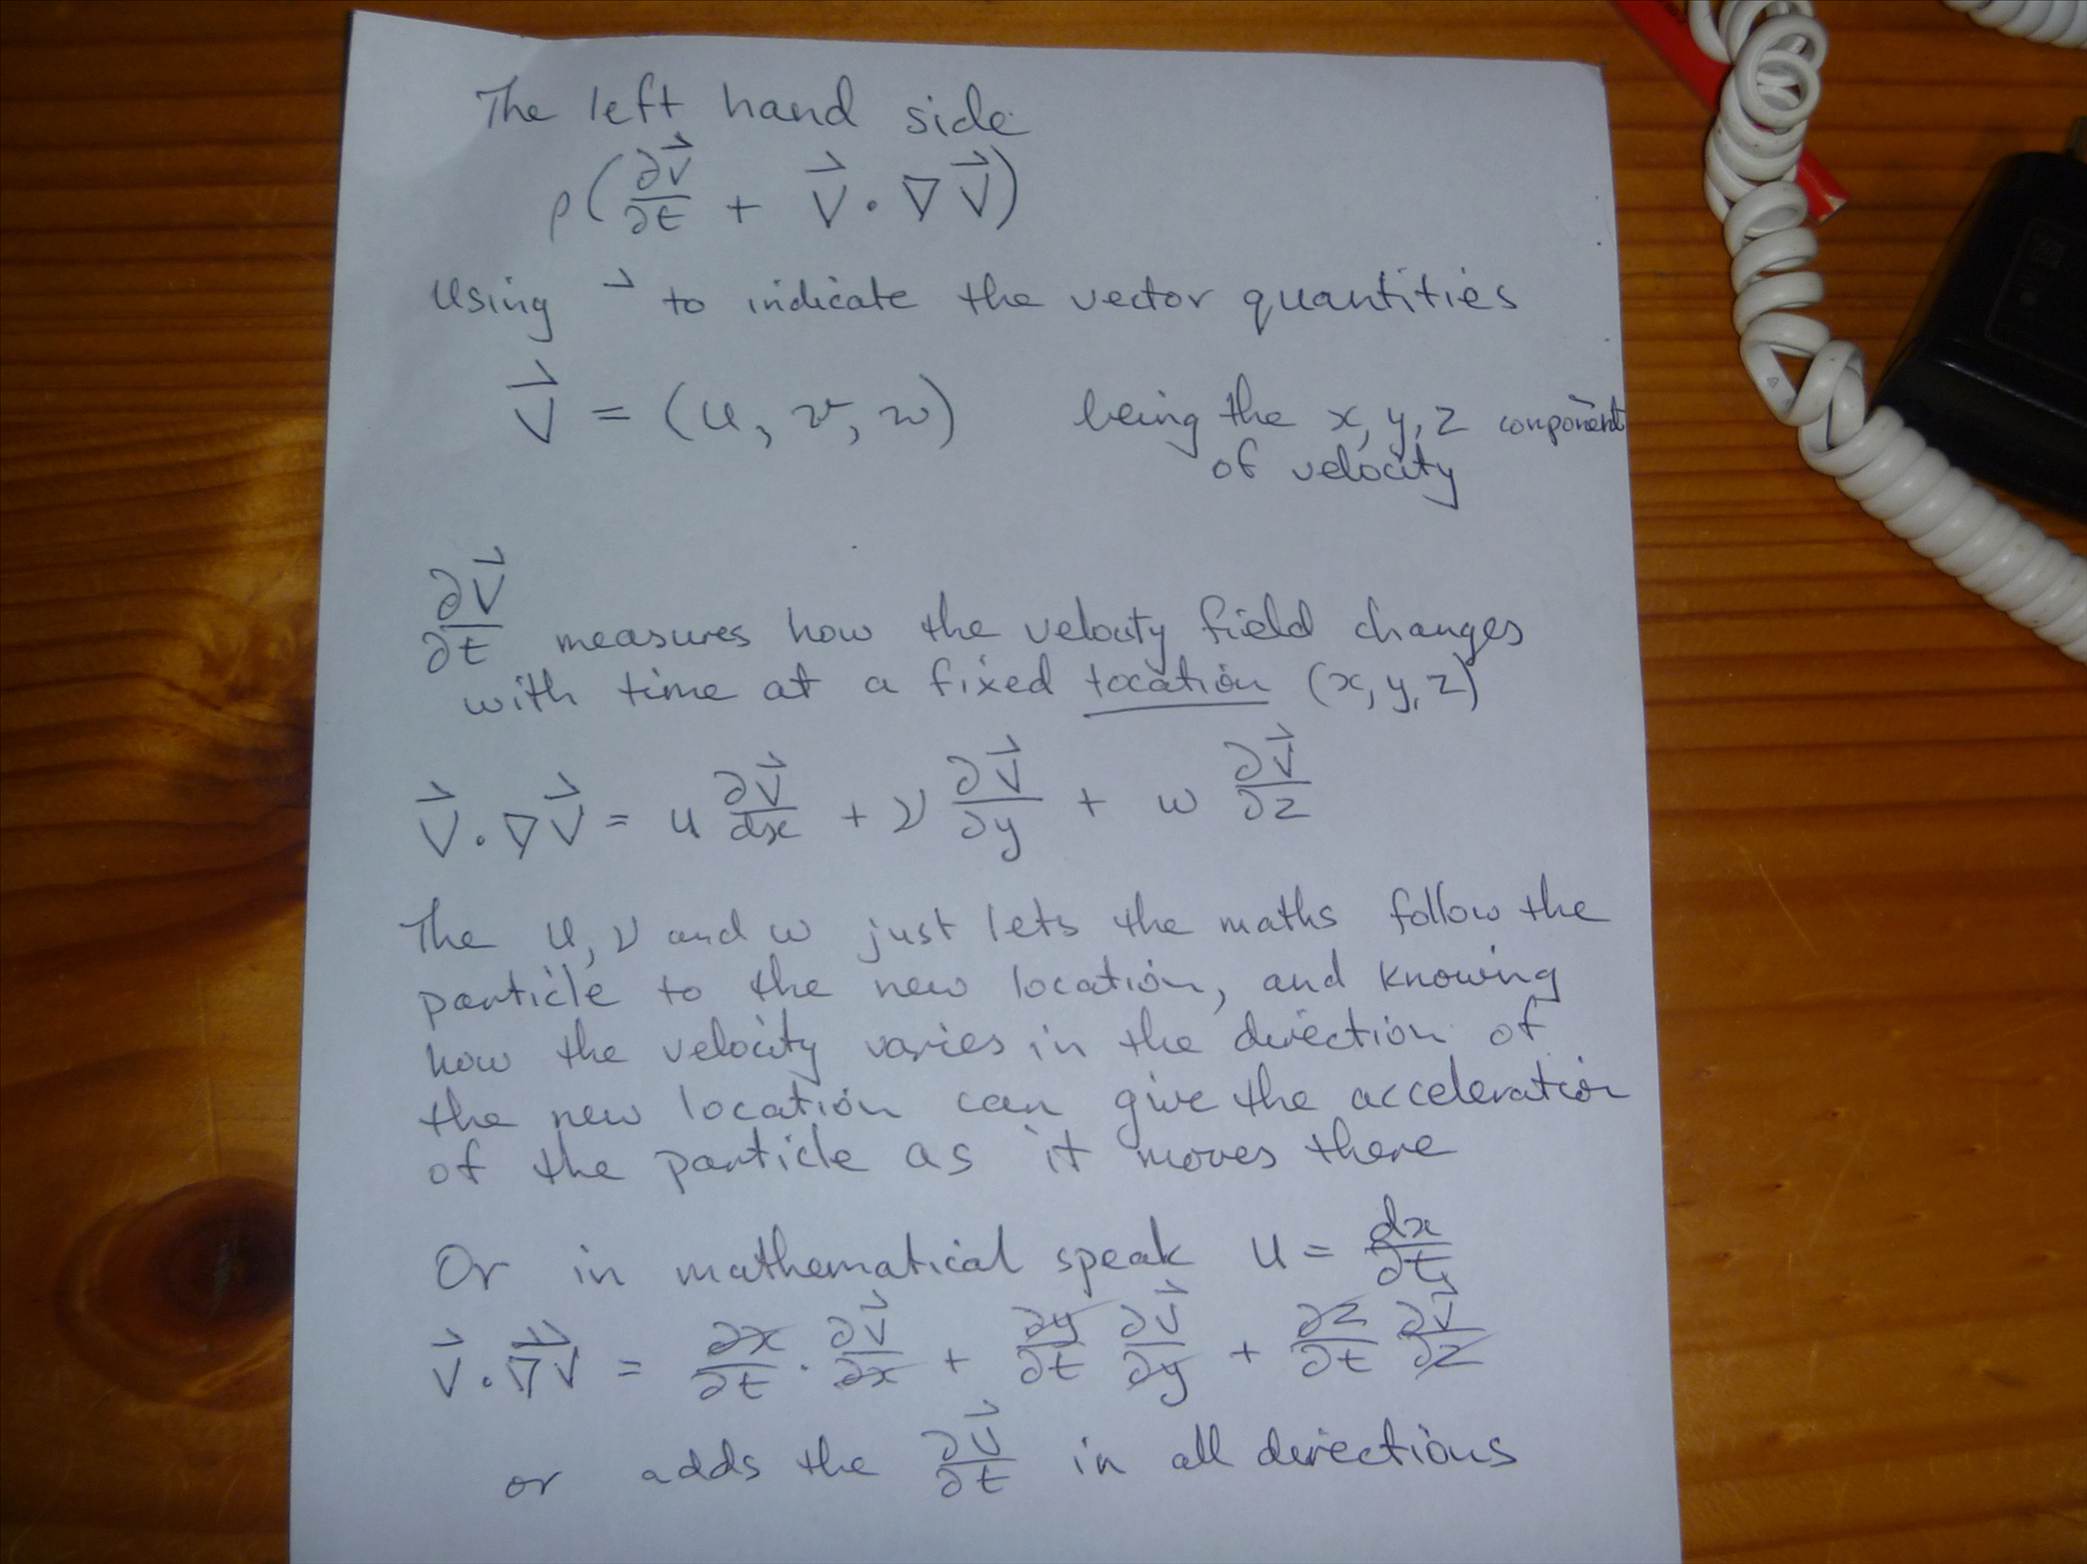 The left hand side
ρ(∂V⃗/∂t + V⃗ · ∇V⃗)
using ⃗ to indicate the vector quantities
V⃗ = (u, v, w) being the x, y, z component
of velocity
∂V⃗/∂t measures how the velocity field changes
with time at a fixed location (x, y, z)
V⃗ · ∇V⃗ = u ∂V⃗/dx + v ∂V⃗/∂y + w ∂V⃗/∂z
The u, v and w just lets the maths follow the
particle to the new location, and knowing
how the velocity varies in the direction of
the new location can give the acceleration
of the particle as it moves there
Or in mathematical speak u = dx/∂t
V⃗ · ∇⃗V⃗ = ∂x/∂t · ∂V⃗/∂x + ∂y/∂t ∂V⃗/∂y + ∂z/∂t ∂V⃗/∂z
or adds the ∂V⃗/∂t in all directions